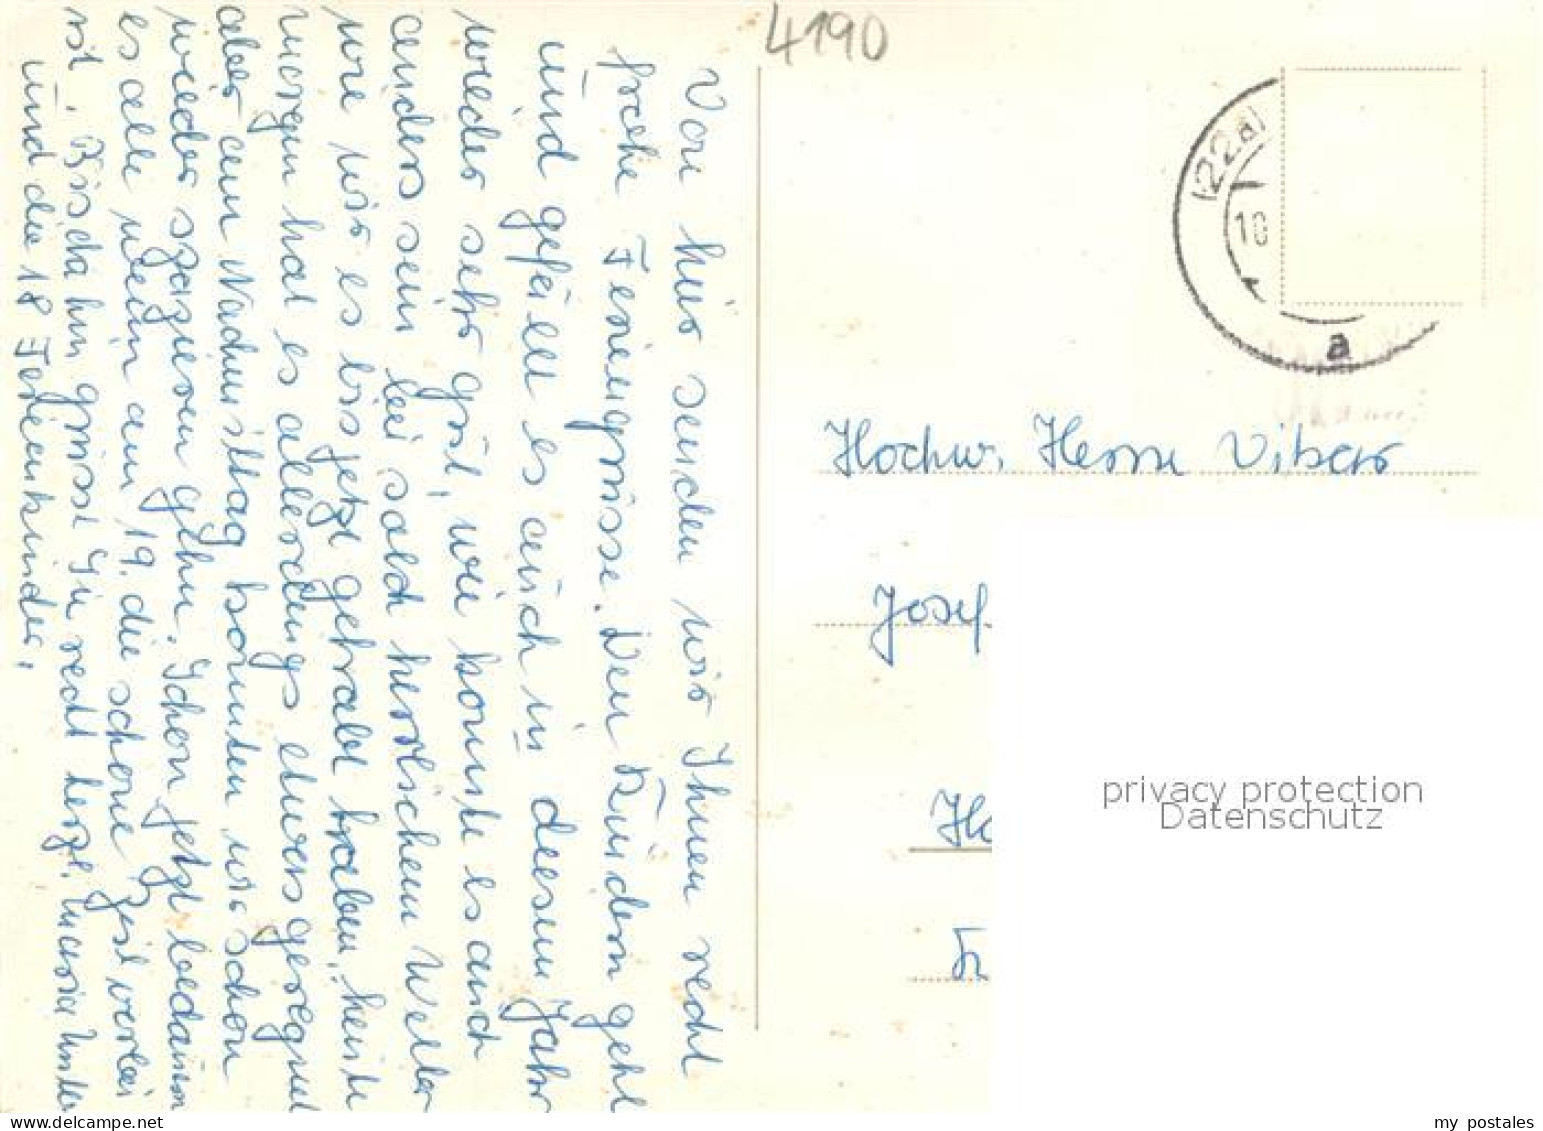 4190
(22a)
10
a
Von hier senden wir Ihnen recht
frohe Feriengrüsse. Den Kindern geht
und gefällt es auch in diesem Jahr
wieder sehr gut, wie konnte es auch
anders sein bei solch herrlichem Wetter
wie wir es bis jetzt gehabt haben, heute
morgen hat es allerdings etwas geregnet
aber am Nachmittag konnten wir schon
wieder spazieren gehn. Schon jetzt bedauern
es alle wenn am 19. die schöne Zeit vorbei
ist. Bis dahin grüsst Sie recht herzl. Maria
und die 18 Ferienkinder.
Hochw. Herrn Vikar
Josef
privacy protection
Datenschutz
my postales